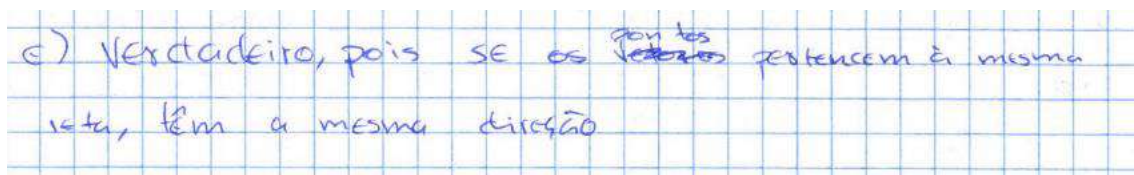 c) Verdadeiro, pois se os pontos vetores pertencem à mesma
reta, têm a mesma direção